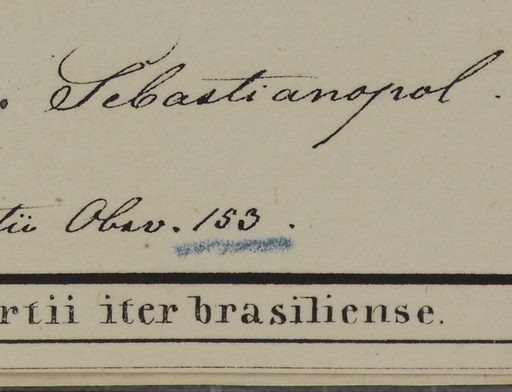 . Sebastianopol.
tii Obsv. 153.
rtii iter brasiliense.